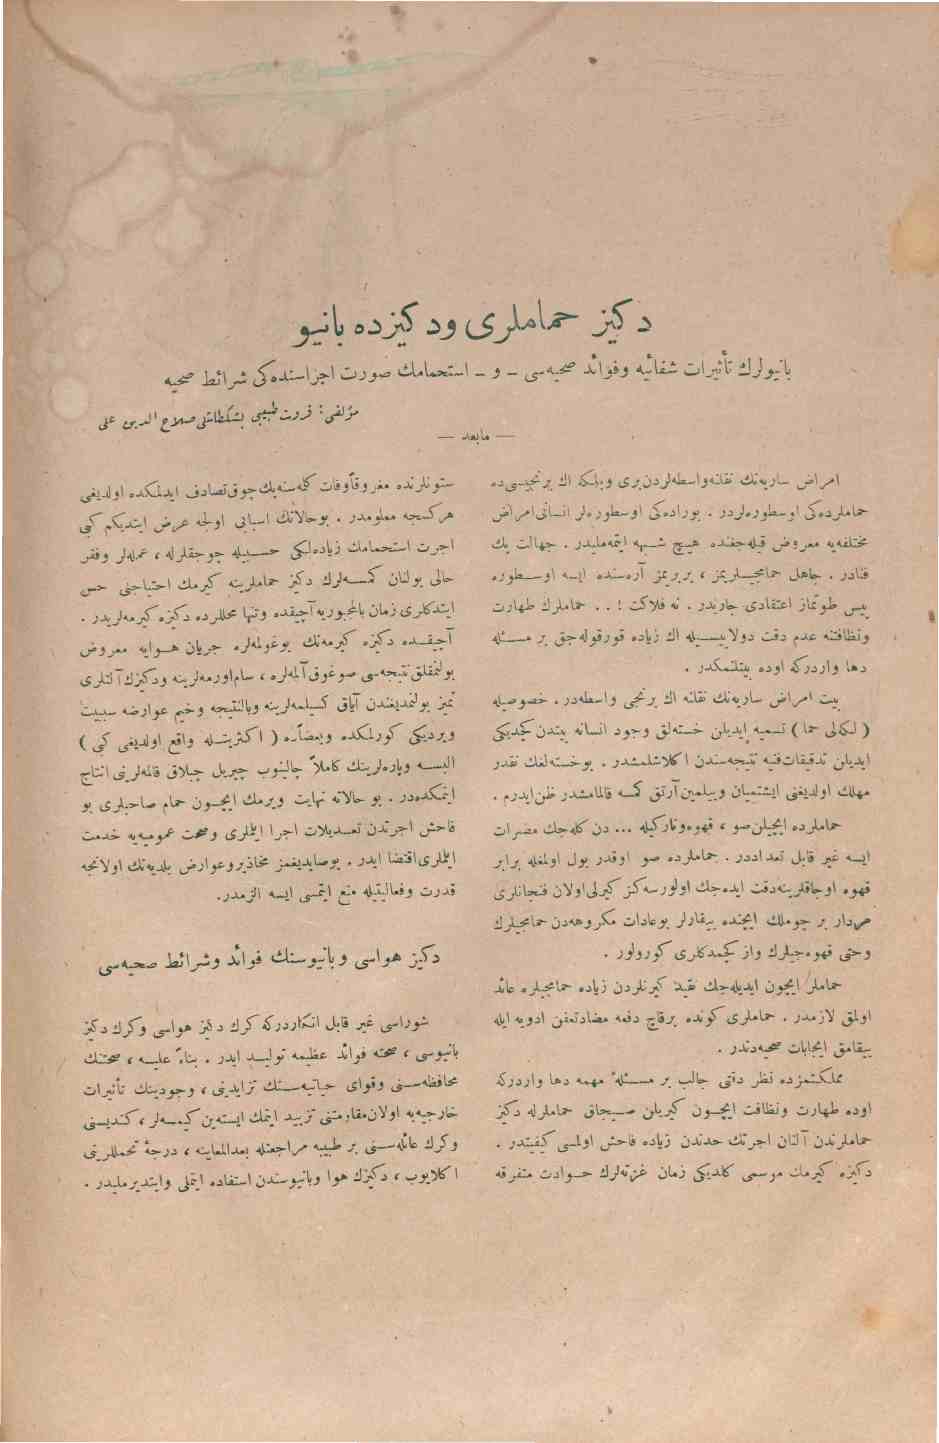 دكيز حماملری ودكيزده بانيو
بانيولرك تأثيرات شفائيه وفوائد صحيه‌سی ـ و ـ استحمامك صورت اجراسنده‌كی شرائط صحيه
مؤلفی: قرووت طبيبی بشكطاشلی صلاح الدين علی
— مابعد —
امراض ساريه‌نك نقلنه واسطه‌لردن بری وبلكه اك برنجيسی ده
حماملرده‌كی اوسطوره‌لردر . بوراده‌كی اوسطوره‌لر انسانی امراض
مختلفه‌يه معروض قيله‌جغنده هيچ شبهه ايتمه‌مليدر . جهالت پك
فنادر . جاهل حمامجيلريمز ، بربريمز آره‌سنده ايسه اوسطوره
پيس طوتماز اعتقادی جاريدر . نه فلاكت ! . . حماملرك طهارت
ونظافتنه عدم دقت دولاييسيله اك زياده قورقوله‌جق بر مسئله
دها واردركه اوده بيتلنمكدر .
بيت امراض ساريه‌نك نقلنه اك برنجی واسطه‌در . خصوصيله
( لكه‌لی حما ) تسميه ايديلن خسته‌لق وجود انسانه بيتدن كچديكی
ايديلن تدقيقات فنيه نتيجه‌سندن اكلاشلمشدر . بوخسته‌لغك نقدر
مهلك اولديغنی ايشتميان وبيلمين آرتق كمسه قالمامشدر ظن ايدرم .
حماملرده ايچيلن صو ، قهوه ونارگيله ... دن كله‌جك مضرات
ايسه غير قابل تعداددر . حماملرده صو اوقدر بول اولمغله برابر
قهوه اوجاقلرينه دقت ايده‌جك اولورسه‌كز كيرلی اولان فنجانلری
مردار بر چوملك ايچنده ييقارلر بوعادات مكروهه‌دن حمامجيلرك
وحتی قهوه‌جيلرك واز كچمدكلری كورولور .
حماملر ايچون ايديله‌جك تقيد كيرنلردن زياده حمامجيلره عائد
اولمق لازمدر . حماملری كونده برقاچ دفعه مضاد تعفن ادويه ايله
ييقامق ايجابات صحيه‌دندر .
مملكتمزده نظر دقتی جالب بر مسئلهٔ مهمه دها واردركه
اوده طهارت ونظافت ايچون كيريلن صيجاق حماملرله دكيز
حماملرندن آلنان اجرتك حددن زياده فاحش اولمسی كيفيتيدر .
دكيزه كيرمك موسمی كلديكی زمان غزته‌لرك حوادث متفرقه
ستونلرنده مغروقاً وفات كلمه‌سنه پك چوق تصادف ايدلمكده اولديغی
هركسجه معلومدر . بوحالاتك اسبابی اولجه عرض ايتديكم كبی
اجرت استحمامك زياده‌لكی حسبيله چوجقلرله ، عمله‌لر وفقر
حالی بولنان كمسه‌لرك دكيز حماملرينه كيرمك احتياجنی حس
ايتدكلری زمان بالمجبوريه آچيقده وتنها محللرده دكيزه كيرمه‌لريدر .
آچيقده دكيزه كيرمه‌نك بوغولمه‌لره جريان هوايه معروض
بولنمقلق نتيجه‌سی صوغوق آلمه‌لره ، سام اورمه‌لرينه ودكيزك آلتلری
تميز بولنمديغندن آياق كسيلمه‌لرينه وبالنتيجه وخيم عوارضه سببيت
ويرديكی كورلمكده وبعضاً ده ( اكثريتله واقع اولديغی كبی )
البسه وپاره‌لرينك كاملاً چالينوب چيريل چپلاق قالمه‌لرينی انتاج
ايتمكده‌در . بو حالاته نهايت ويرمك ايچون حمام صاحبلری بو
فاحش اجرتدن تعديلات اجرا ايتملری وصحت عموميه‌يه خدمت
ايتملری اقتضا ايدر . بوصايديغمز محاذير وعوارض بلديه‌نك اولانجه
قدرت وفعاليتيله منع ايتمسی ايسه الزمدر.
دكيز هواسی وبانيوسنك فوائد وشرائط صحيه‌سی
شوراسی غير قابل انكاردركه كرك دكيز هواسی وكرك دكيز
بانيوسی ، صحته فوائد عظيمه توليد ايدر . بناءً عليه ، صحتنك
محافظه‌سنی وقوای حياتيه‌سنك تزايدينی ، وجودينك تأثيرات
خارجيه‌يه اولان مقاومتنی تزييد ايتمك ايستەين كيمسه‌لر ، كنديسنی
وكرك عائله‌سنی بر طبيبه مراجعتله بعدالمعاينه ، درجهٔ تحمللرينی
اكلايوب ، دكيزك هوا وبانيوسندن استفاده ايتملی وايتديرمليدر .